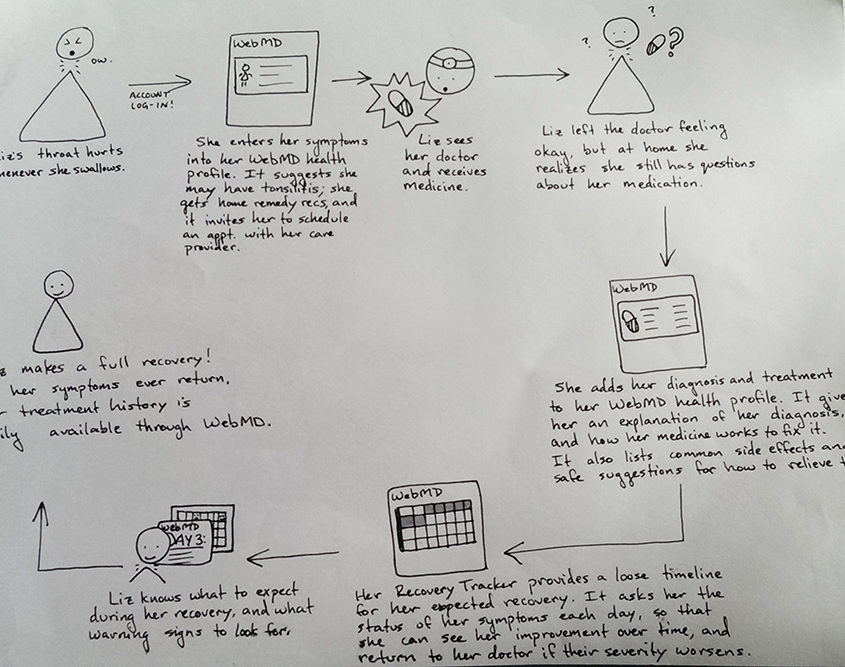 OW.
Liz's throat hurts
whenever she swallows.
ACCOUNT
LOG-IN!
WebMD
She enters her symptoms
into her WebMD health
profile. It suggests she
may have tonsilitis; she
gets home remedy recs, and
it invites her to schedule
an appt. with her care
provider.
Liz sees
her doctor
and receives
medicine.
? ? ?
Liz left the doctor feeling
okay, but at home she
realizes she still has questions
about her medication.
WebMD
She adds her diagnosis and treatment
to her WebMD health profile. It give
her an explanation of her diagnosis,
and how her medicine works to fix it.
It also lists common side effects and
safe suggestions for how to relieve t
WebMD
Her Recovery Tracker provides a loose timeline
for her expected recovery. It asks her the
status of her symptoms each day, so that
she can see her improvement over time, and
return to her doctor if their severity worsens.
WebMD
AY 3:
Liz knows what to expect
during her recovery, and what
warning signs to look for.
z makes a full recovery!
her symptoms ever return,
r treatment history is
ily available through WebMD.